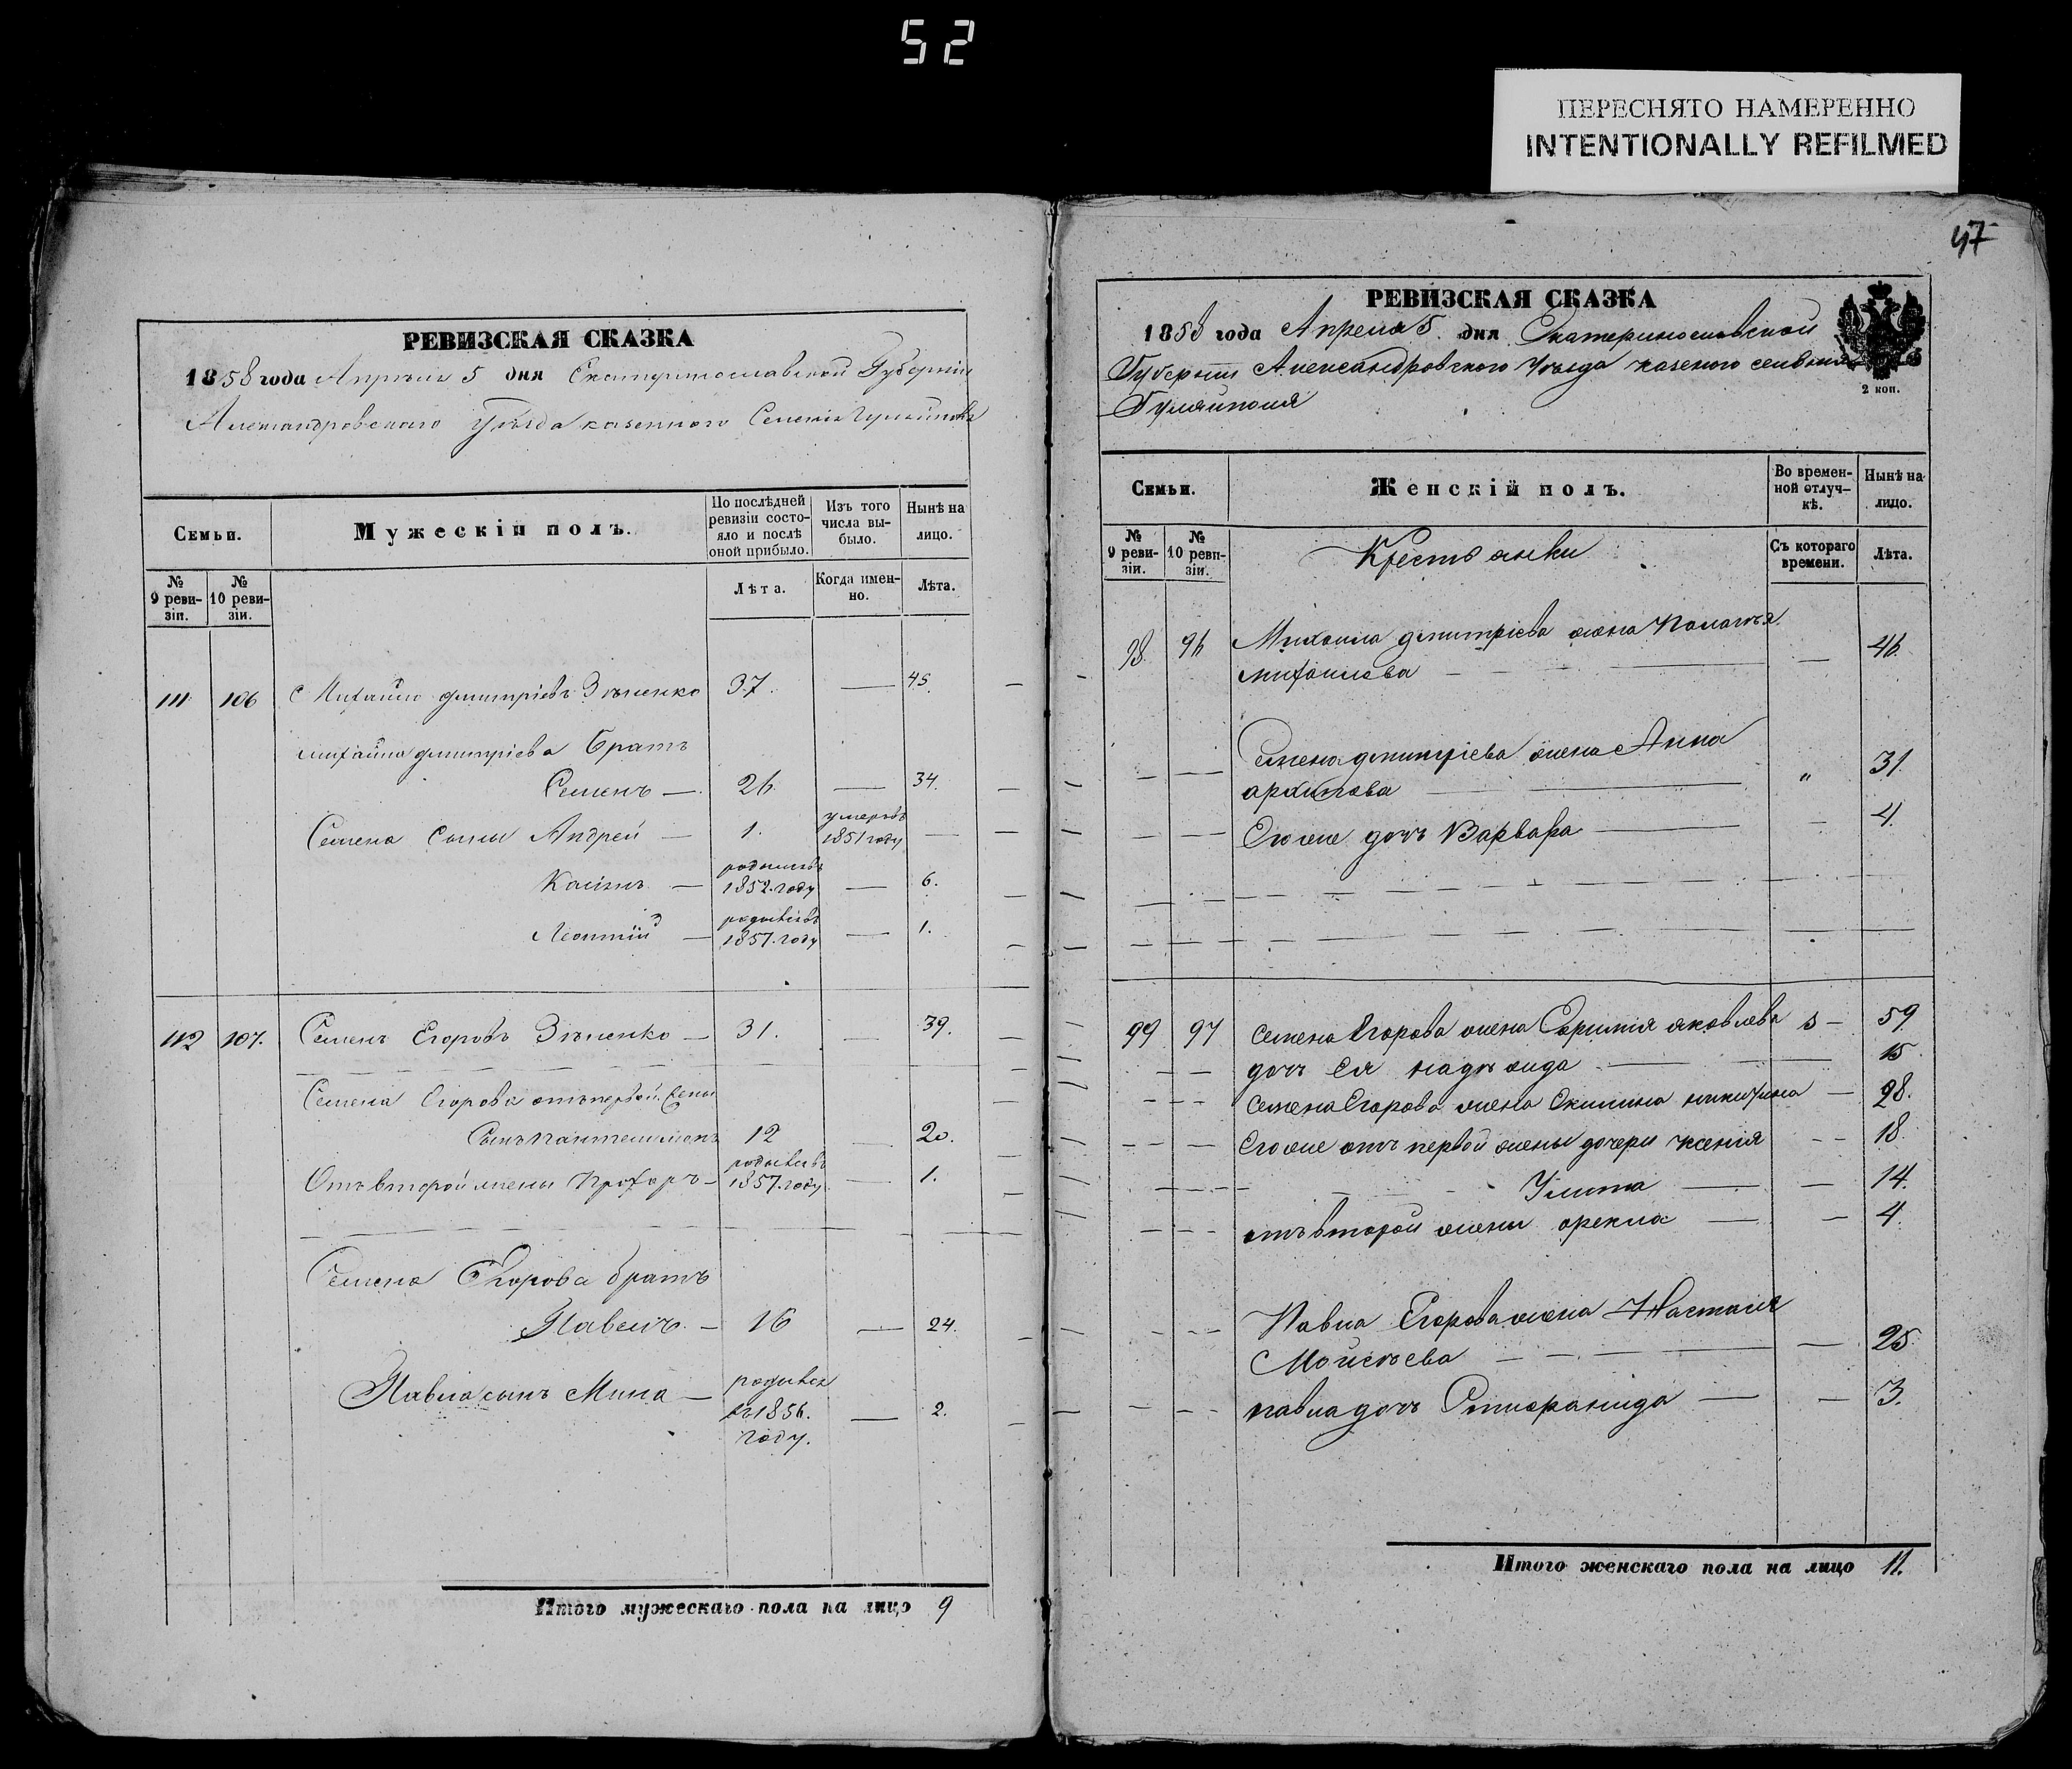 52
ПЕРЕСНЯТО НАМЕРЕННО
INTENTIONALLY REFILMED
РЕВИЗСКАЯ СКАЗКА
1858 года Апреля 5 дня Екатеринославской Губерніи
Александровского Уѣзда казенного Селенія Гуляйполя
Семьи.
Мужескій полъ.
По послѣдней ревизіи состояло и послѣ оной прибыло.
Изъ того числа выбыло.
Нынѣ на лицо.
№ 9 ревизіи.
№ 10 ревизіи.
Лѣта.
Когда именно.
Лѣта.
111 106 Михайло Дмитріевъ Зѣненко 37. — 45.
Михайла Дмитріева братъ
Семенъ — 26 — 34.
Семена сыны Андрей — 1. умеръ въ 1851 году —
Касіянъ — родился въ 1852. году — 6.
Леонтій — родився въ 1857. году — 1.
112 107. Семенъ Егоровъ Зѣненко — 31. — 39.
Семена Егорова отъ первой жены
Сынъ Пантелимонъ 12 — 20.
Отъ второй жены Прохоръ — родився въ 1857. году — 1.
Семена Егорова братъ
Павелъ — 16 — 24.
Павла сынъ Мина — родився въ 1856. году. — 2.
Итого мужескаго пола на лицо 9
47
РЕВИЗСКАЯ СКАЗКА
1858 года Апреля 5 дня Екатеринославской
Губерніи Александровского Уѣзда казеного селенія
Гуляйполя
2 коп.
Семьи.
Женскій полъ.
Во временной отлучкѣ.
Нынѣ на лицо.
№ 9 ревизіи.
№ 10 ревизіи.
Крестьянки
Съ котораго времени.
Лѣта.
98 96 Михаила Дмитріева жена Палажъя
Михайлова — 46.
Семена Дмитріева жена Анна
Архипова — " 31.
Его же дочь Варвара — 4.
99 97 Семена Егорова жена Яковлева — 59
дочь Ея — 15.
Семена Егорова жена Акилина Никитина — 28.
Его же отъ первой жены дочери Ксенія — 18.
Улита — 14.
отъ второй жены Фекла — 4.
Павла Егорова жена Настасія
Мойсѣева — 25.
Павла дочь — 3.
Итого женскаго пола на лицо 11.